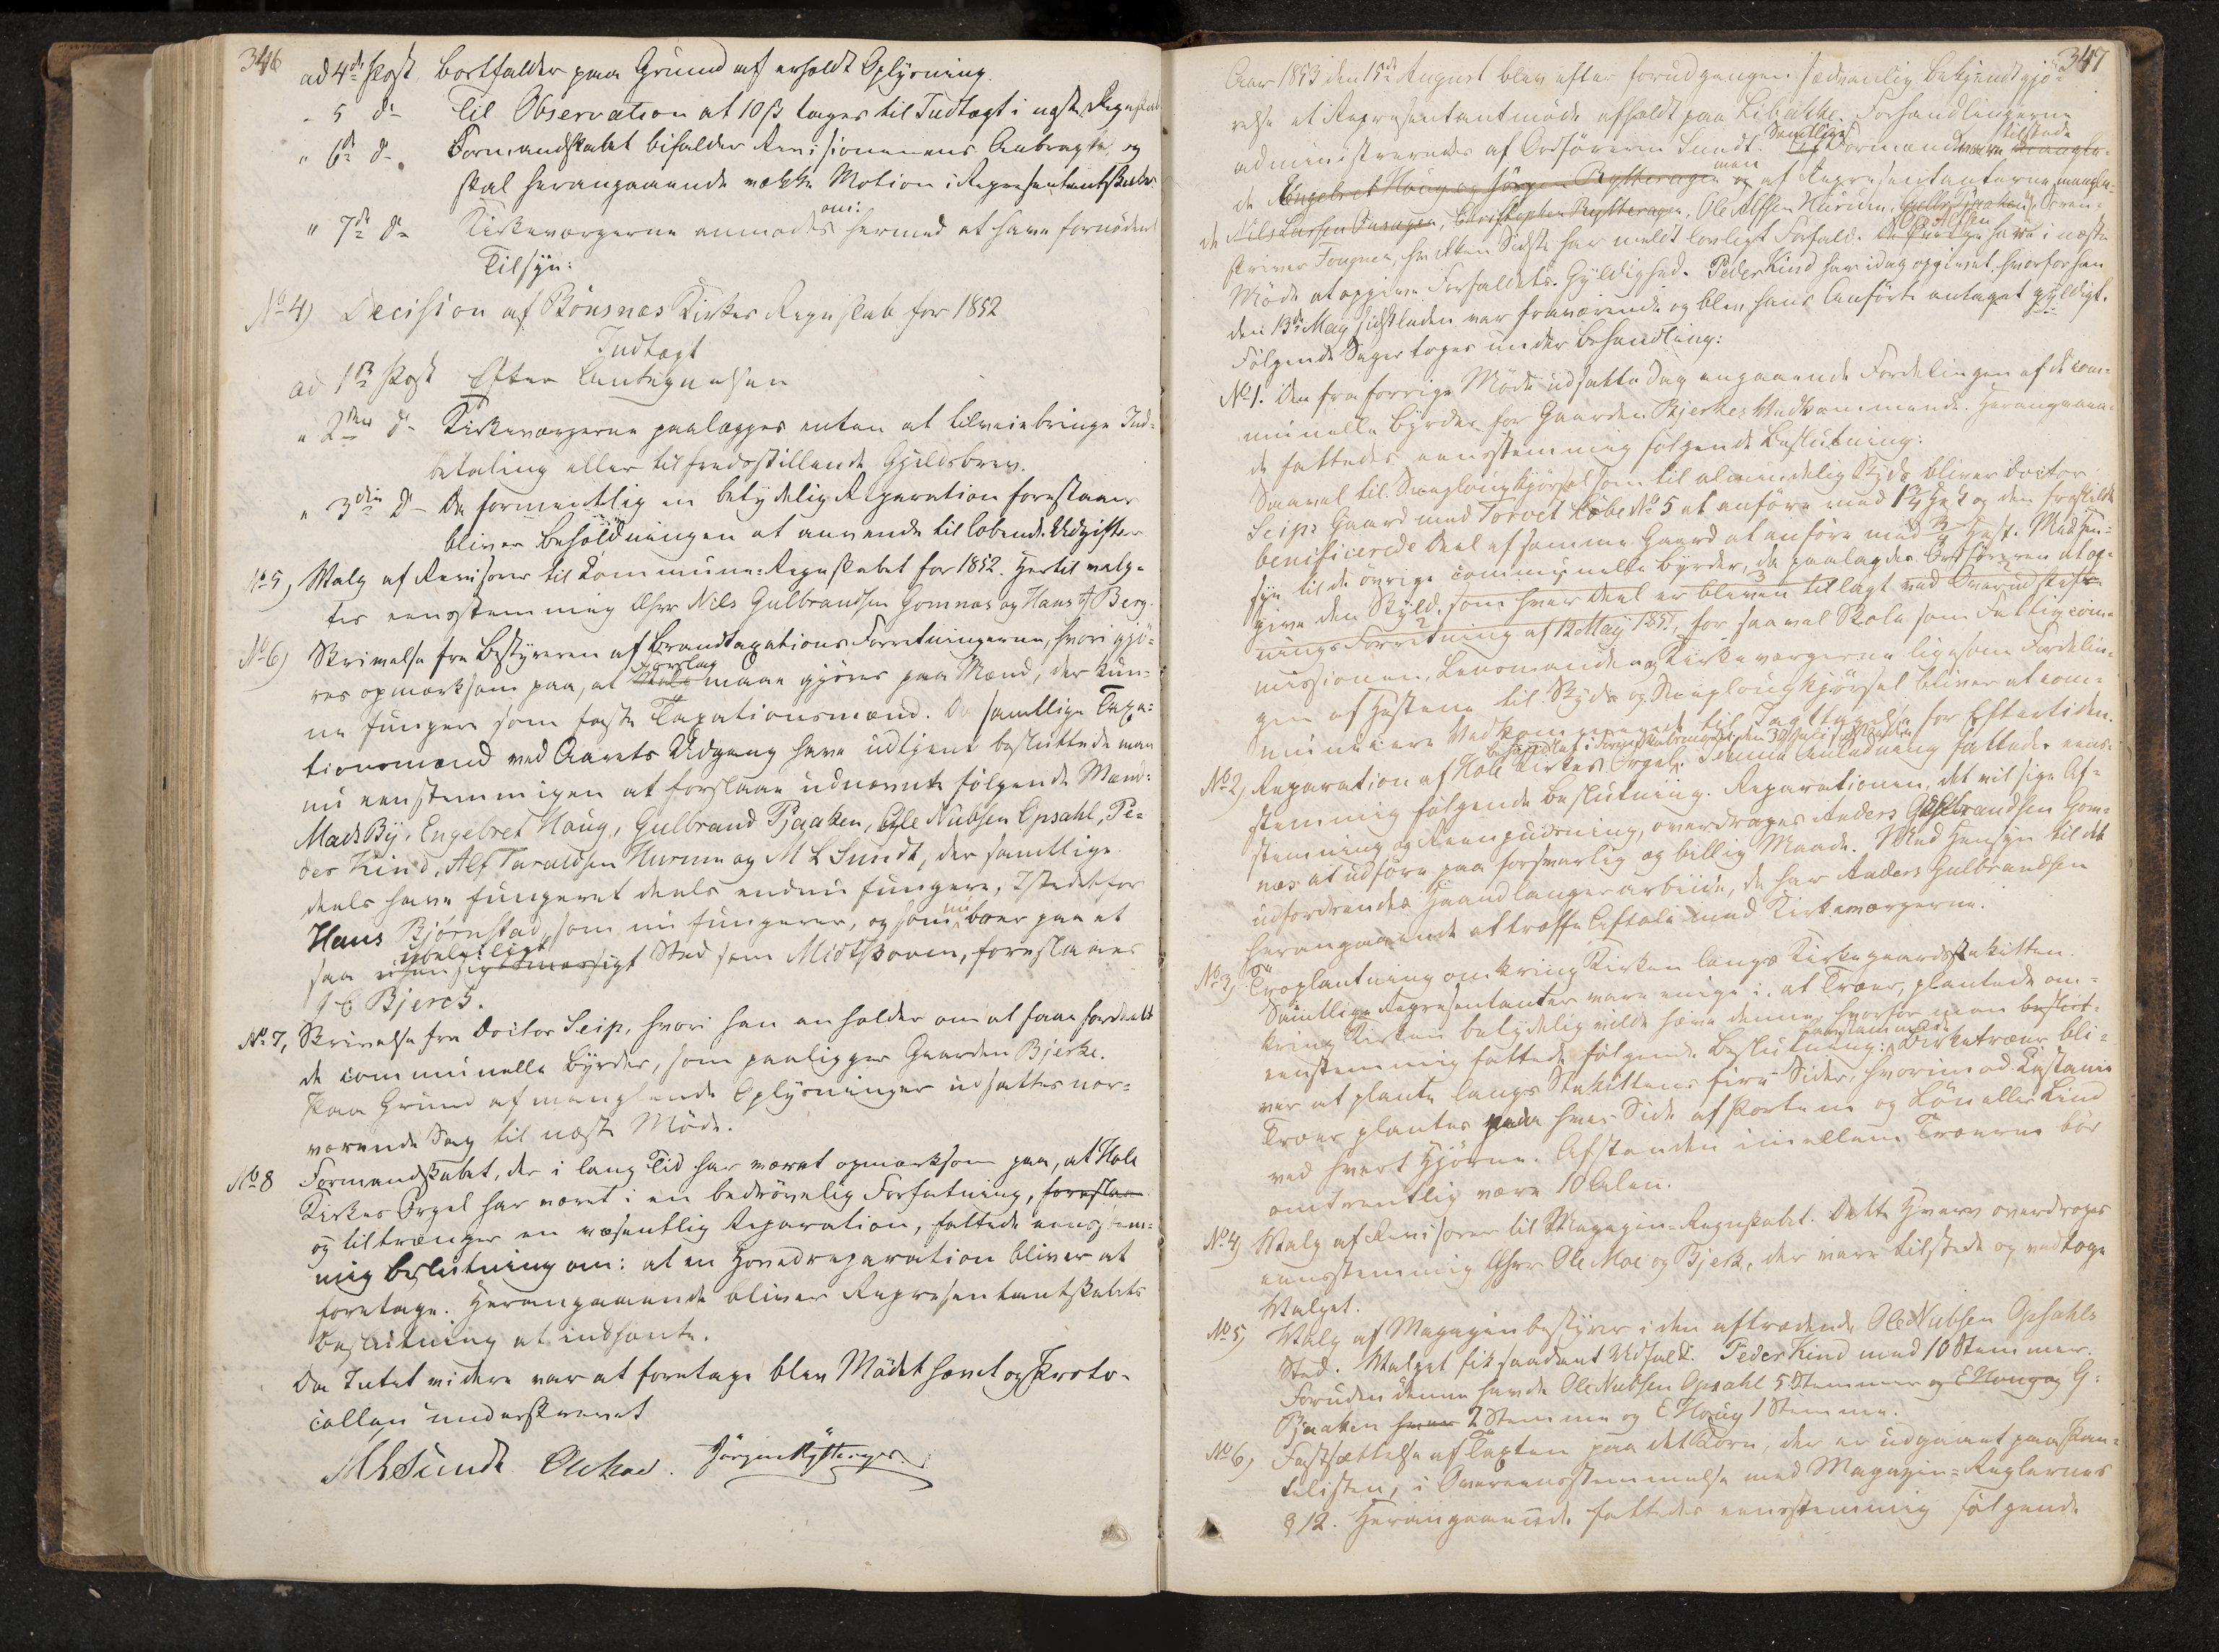 346
ad 4de Post bortfalder paa Grund af erholdt Oplysning.
" 5 do Til Observation at 10 ß tages til Indtægt i næste Regnskab
" 6te do Formandskabet bifalder Revisionenens Antegnelse og
skal herangaaende vække Motion i Repræsentantskabet
" 7de do Kirkeværgerne anmodes hermed at have fornödent
om:
Tilsyn:
No 4) Decision af Bönsnæs Kirkes Regnskab for 1852
Indtægt
ad 1ste Post Efter Antegnelsen
" 2den do Kirkeværgerne paalægges enten at tilveiebringe Ind-
betaling eller tilfredsstillende Gjeldsbrev.
" 3die do Da formentlig en betydelig Reparation forestaaer
bliver Beholdningen at anvende til løbende Udgifter
No 5, Valg af Revisorer til Kommune-Regnskabet for 1852. Hertil valg-
tes eensstemmig Hrr Nils Gulbrandsen Gomnæs og Hans Berg.
No 6) Skrivelse fra Bestyreren af Brandtaxations Forretningerne, hvori gjö-
res opmærksom paa, at Valg maae gjøres paa Mænd, der kun-
Forslag
ne fungere som faste Taxationsmænd. Da samtlige Taxa-
tionsmænd ved Aarets Udgang have udtjent besluttede man
nu eenstemmigen at forslaae udnævnte fölgende Mænd:
Mads By, Engebret Haug, Gulbrand Pjaaken, Ole Nubsen Opsahl, Pe-
der Kind, Alf Taraldsen Hurum og M L Sundt, der samtlige
deels have fungeret deels endnu fungere, Istedetfor
Hans Bjørnstad, som nu fungerer, og som boer paa et
nu
saa Sted som Midtskoven, foreslaaes
ubeleiligt
Bjerck.
No 7, Skrivelse fra Doctor Seip, hvori han anholder om at faae fordeelt
de communelle Byrder, som paaligger Gaarden Bjerke.
Paa Grund af manglende Oplysninger udsattes nær-
værende Sag til næste Möde.
No 8 Formandskabet, der i lang Tid har været opmærksom paa, at Hole
Kirkes Orgel har været i en bedrövelig Forfatning, foreslaae
og tiltrænger en væsentlig Reparation, fattede eensstem-
mig Beslutning om: at en Hovedreparation bliver at
foretage. Herangaaende bliver Repræsentantskabets
Beslutning at indhente.
Da Intet videre var at foretage blev Mödet hævet og Proto-
collen underskrevet
MLSundt Ole Moe. Jörgen Rytterager
347
Aar 1853 den 15de August blev efter forudgangen sædvanlig Bekjendtgjö-
relse et Repræsentantmöde afholdt paa Libakke. Forhandlingerne
administreredes af Ordföreren Sundt. Af Formændene mangle-
Samtlige vare tilstede
de Engebret Haug og Jörgen Rytterager og af Repræsentanterne mangle-
men
de Nils Larsen Furager, Christopher Rytterager, Ole Alfsen Hurum, Soren-
skriver Fougner, hvilken Sidste har meldt lovligt Forfald. have i næste
Ole Alfsen
Möde at opgive Forfaldets Gyldighed. Peder Kind har idag opgivet, hvorfor han
den 13de May sidstleden var fraværende og blev hans Anförte antaget gyldigt.
Fölgende Sager toges under Behandling:
No 1. Den fra forrige Möde udsatte Sag angaaende Fordelingen af de com-
munelle Byrder for Gaarden Bjerkes Vedkommende. Herangaaen-
de fattedes eensstemmig fölgende Beslutning:
Saavel til Sneplougkjörsel som til almindelig Skyds bliver Doctor
Seips Gaard med Torvet Löbe No 5 at anföre med 1 1/4 Hest og den fraskilte
benificerede Deel af samme Gaard at anföre med 3/4 Hest. Med Hen-
syn til de övrige communelle Byrder, da paalagdes Ordföreren at op-
give den Skyld, som hver Deel er bleven tillagt ved
ningsForretning af 12 May 185, for saavel Skole som Fattigcom-
missionen, Lensmanden og Kirkeværgerne ligesom Fordelin-
gen af Hestene til Skyds og Sneplougkjörsel bliver at com-
municere Vedkommende til Iagttagelse for Eftertiden.
No 2, Reparation af Hole Kirkes Orgel. I denne Anledning fattedes eens-
behandlet i Formandskabsmöde den 30 Juni
stemmig fölgende Beslutning. Reparationen, det vil sige Af-
stemning og Reenpudsning, overdrages Anders Gulbrandsen Gom-
næs at udföre paa forsvarlig og billig Maade. Med Hensyn til det
udfordrende Haandlangerarbeide, da har Anders Gulbrandsen
herangaaende at træffe Aftale med Kirkeværgerne.
No 3, Træplantning omkring Kirken langs Kirkegaardsstakittet.
Samtlige Repræsentanter vare enige i, at Træer, plantede om-
kring Kirken betydelig vilde hæve denne, hvorfor man beslut-
eenstemmig fattede fölgende Beslutning: Birketræer bli-
ver at plante langs Stakittens fire Sider, hvorimod Kastanie
Træer plantes paa hver Side af Portene og Lön eller Lind
ved hvert Hjörne. Afstanden imellem Træerne bör
omtrentlig være 10 Alen.
No 4, Valg af Revisorer til Magazin-Regnskabet. Dette Hverv overdroges
eensstemmig Hrr Ole Moe og Bjerk, der vare tilstede og vedtoge
Valget.
No 5, Valg af Magazinbestyrer i den aftrædende Ole Nubsen Opsahls
Sted. Valget fik saadant Udfald. Peder Kind med 10 Stemmer.
Foruden denne havde Ole Nubsen Opsahl 5 Stemmer og E Haug og G:
Pjaaken hver 2 Stemmer og E Haug 1 Stemme.
No 6, Fastsættelse af Taxten paa det Korn, der er udgaaet paa Pan-
telisten, i Overeensstemmelse med Magazin-Reglernes
§ 12. Herangaaende fattedes eensstemmig fölgende